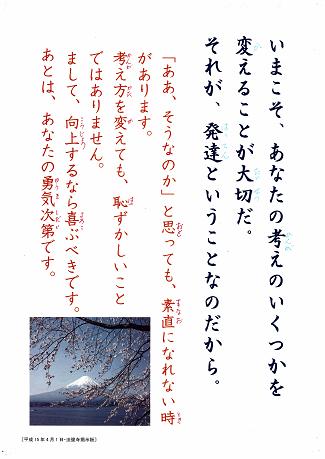 いまこそ、あなたの考えのいくつかを
変えることが大切だ。
それが、発達ということなのだから。
「ああ、そうなのか」と思っても、素直になれない時
があります。
考え方を変えても、恥ずかしいこと
ではありません。
まして、向上するなら喜ぶべきです。
あとは、あなたの勇気次第です。
［平成15年4月1日・法螢寺掲示板］